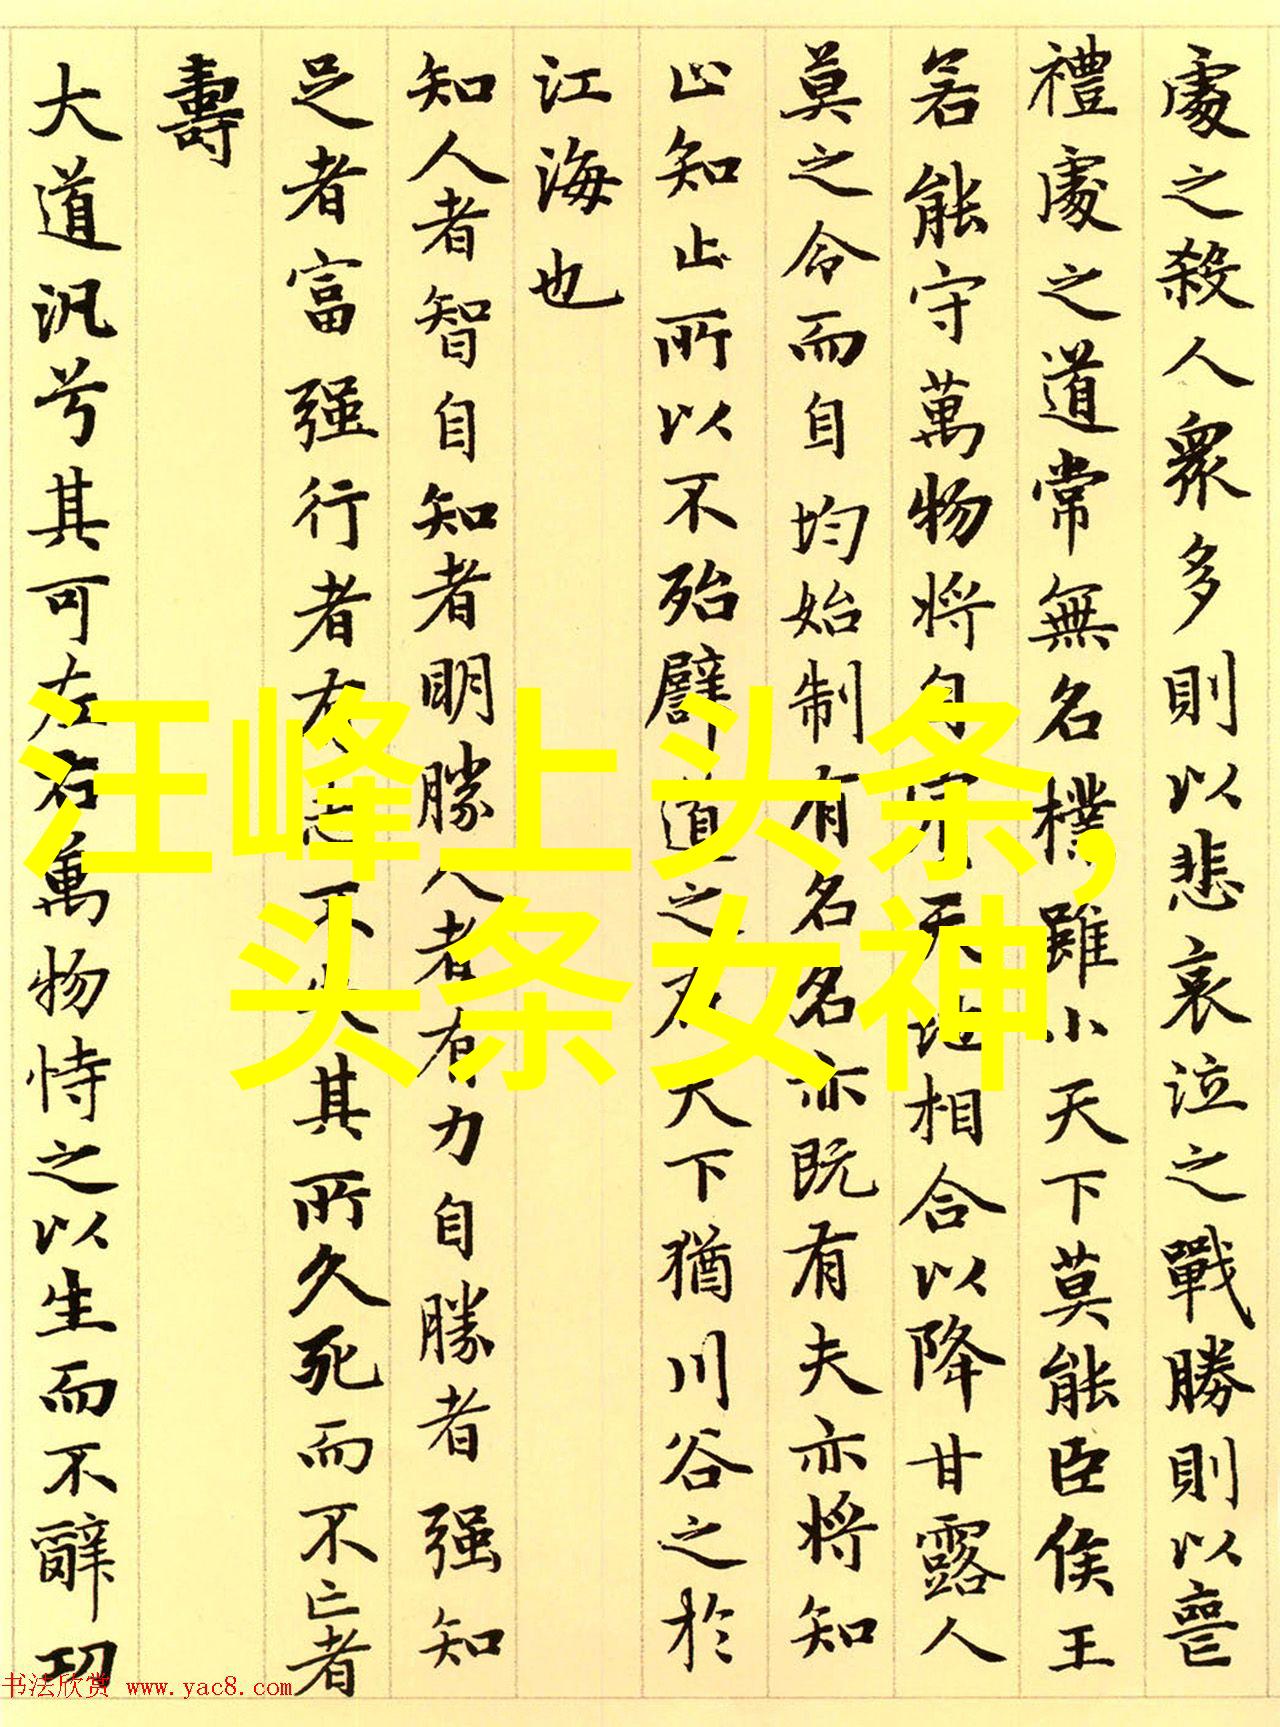 處之殺人衆多則以悲哀泣之戰勝則以喪
禮處之道常無名樸雖小天下莫能臣侯王
若能守萬物將自賓天地相合以降甘露人
莫之令而自均始制有名名亦既有夫亦將知
止知止所以不殆譬道之在天下猶川谷之於
江海也
知人者智自知者明勝人者有力自勝者强知
足者富强行者有志不失其所久死而不亡者
壽
大道汎兮其可左右萬物恃之以生而不辭功
汪峰上头条,
头条女神
书法欣赏 www.yac8.com